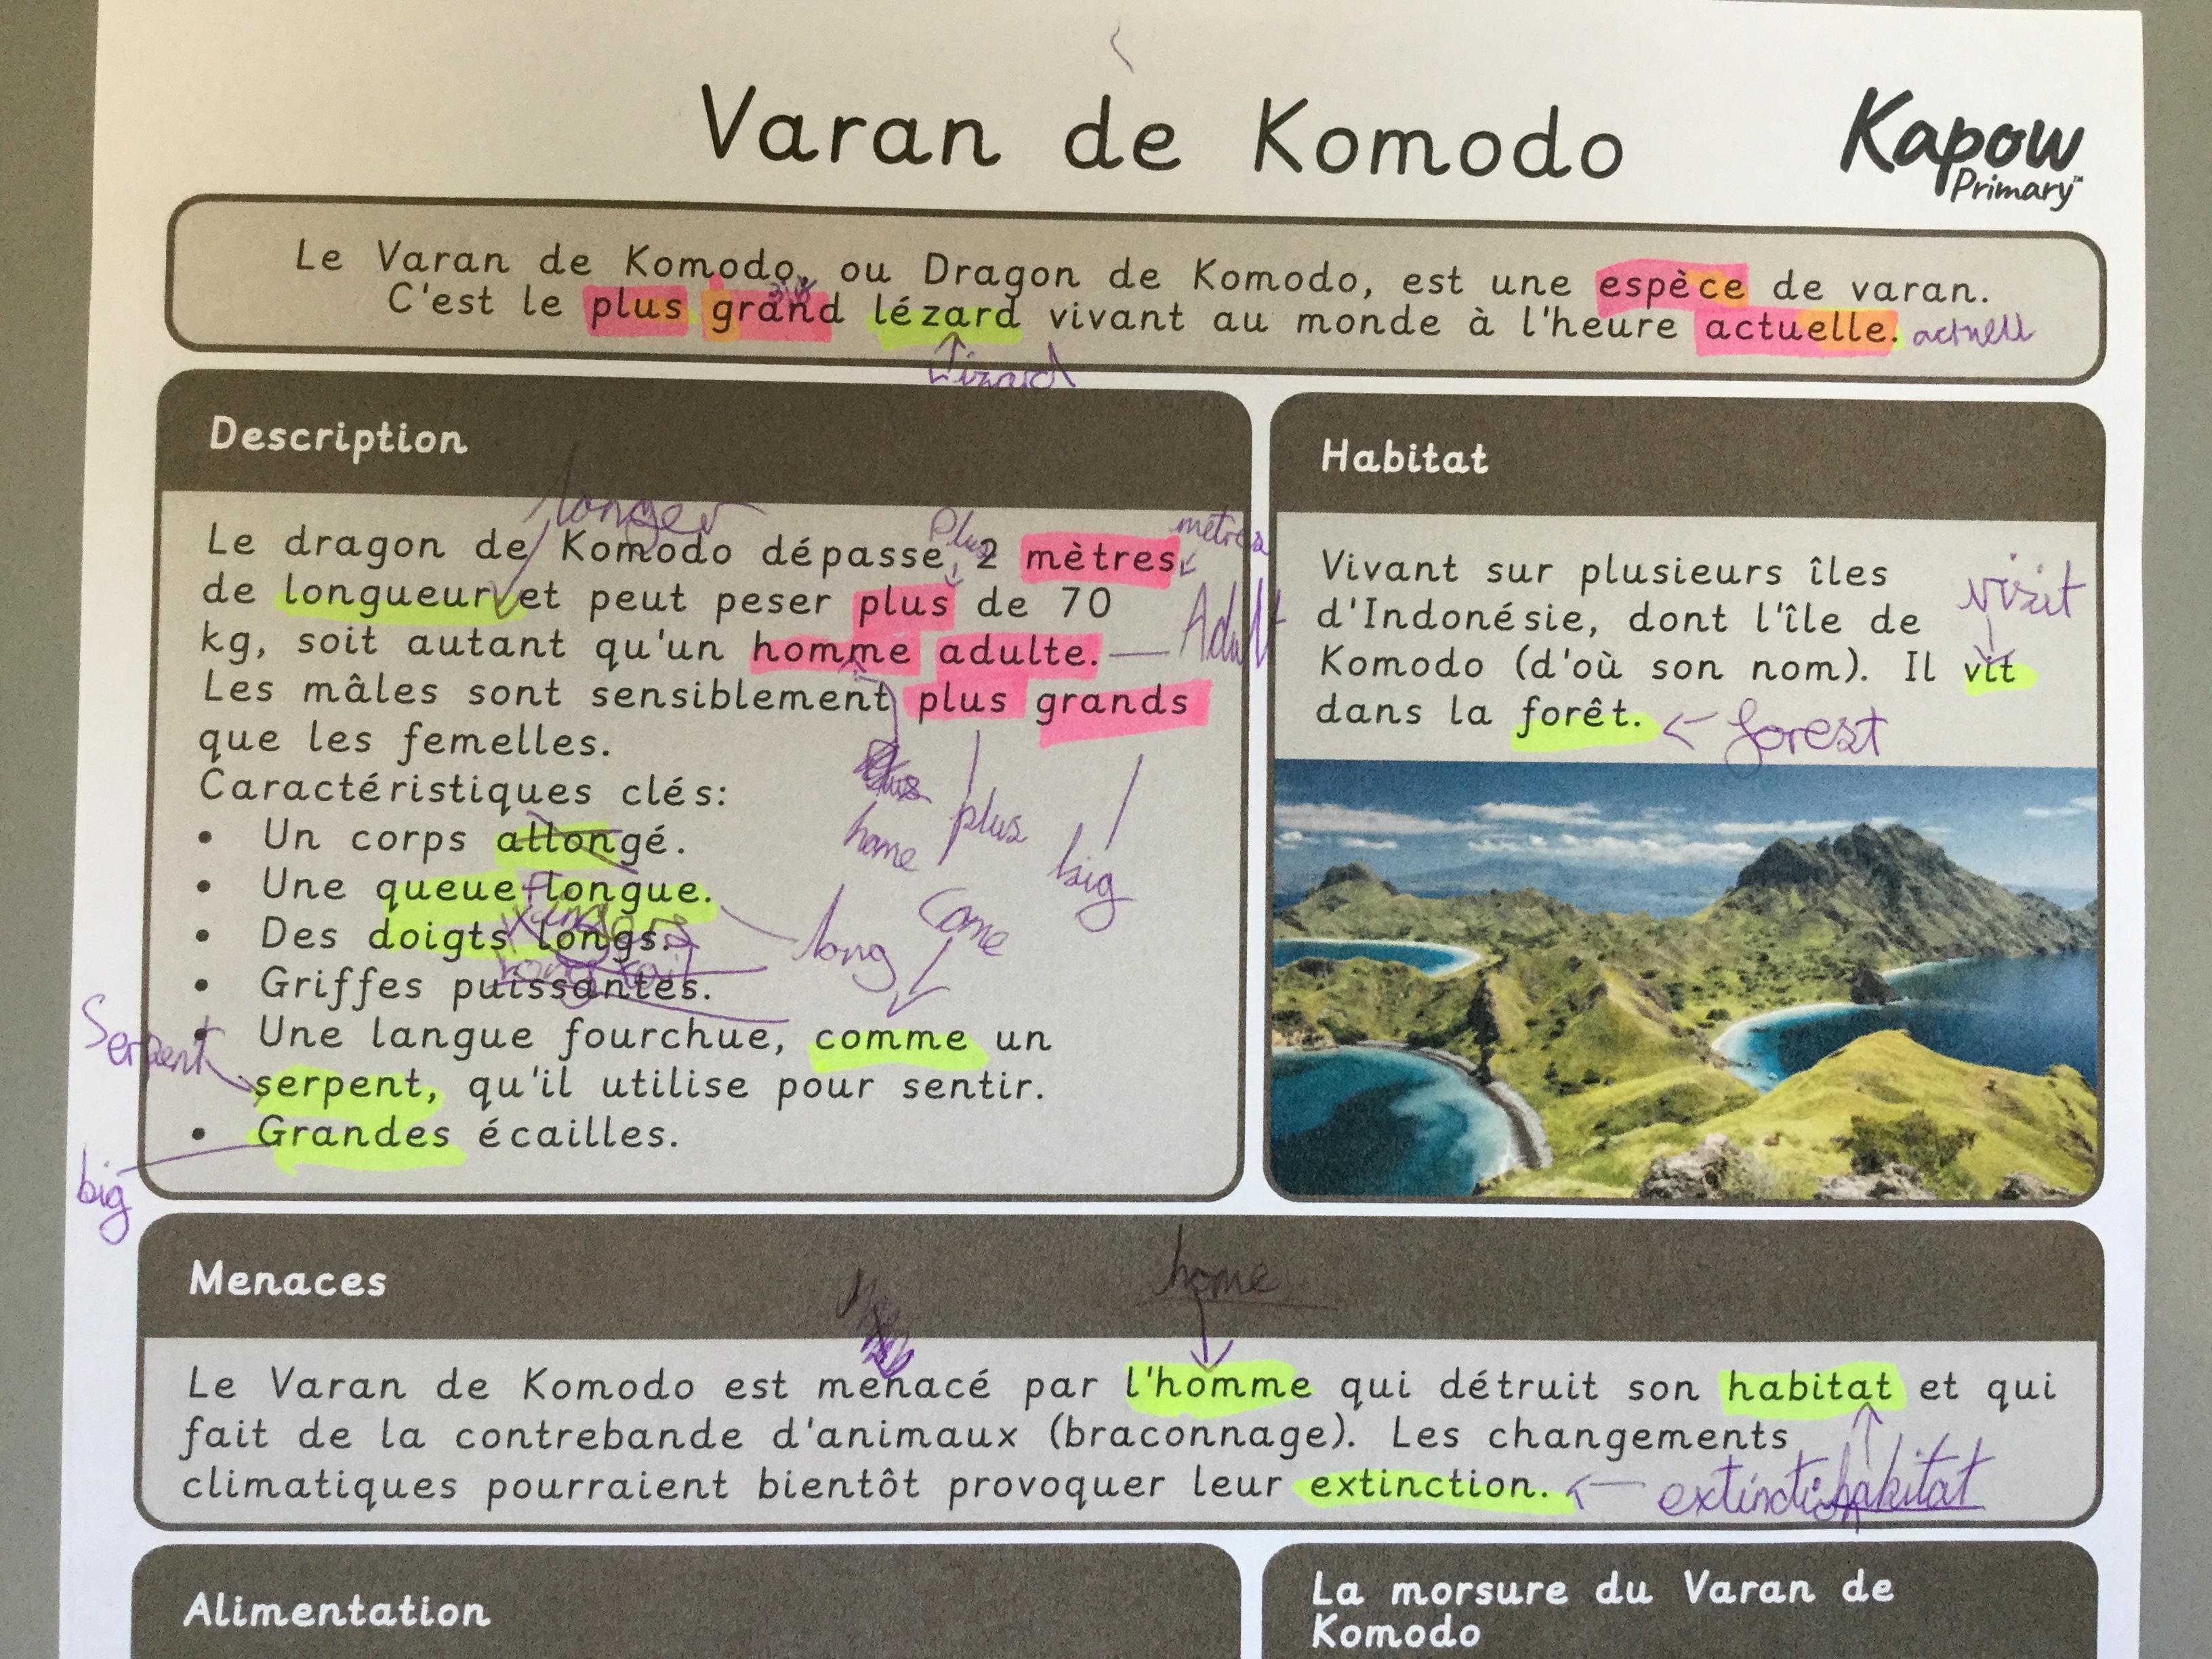 Varan de Komodo
Kapow
Primary™
Le Varan de Komodo, ou Dragon de Komodo, est une espèce de varan.
C'est le plus grand lézard vivant au monde à l'heure actuelle.
Lizard
Description
longer
Plus
metres
Le dragon de Komodo dépasse 2 mètres
de longueur et peut peser plus de 70
kg, soit autant qu'un homme adulte.
Adult
Les mâles sont sensiblement plus grands
que les femelles.
Caractéristiques clés:
home
plus
big
• Un corps allongé.
• Une queue longue.
• Des doigts longs.
long
Come
• Griffes puissantes.
• Une langue fourchue, comme un
serpent, qu'il utilise pour sentir.
Serpent
• Grandes écailles.
big
Habitat
Vivant sur plusieurs îles
visit
d'Indonésie, dont l'île de
Komodo (d'où son nom). Il vit
dans la forêt.
forest
Menaces
home
Le Varan de Komodo est menacé par l'homme qui détruit son habitat et qui
fait de la contrebande d'animaux (braconnage). Les changements
climatiques pourraient bientôt provoquer leur extinction.
habitat
Alimentation
La morsure du Varan de
Komodo